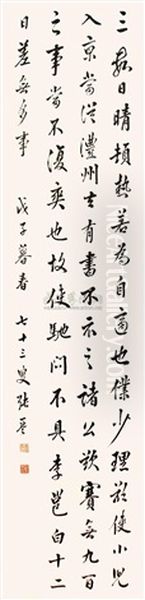 三數日晴頓熱若為自適也僕少理欲使小兒
入京當從澧州去有書不示之諸公欲賽無九百
之事當不復爽也故使馳問不具李邕白十二
日差無多事 戊子暮春 七十三叟張琴